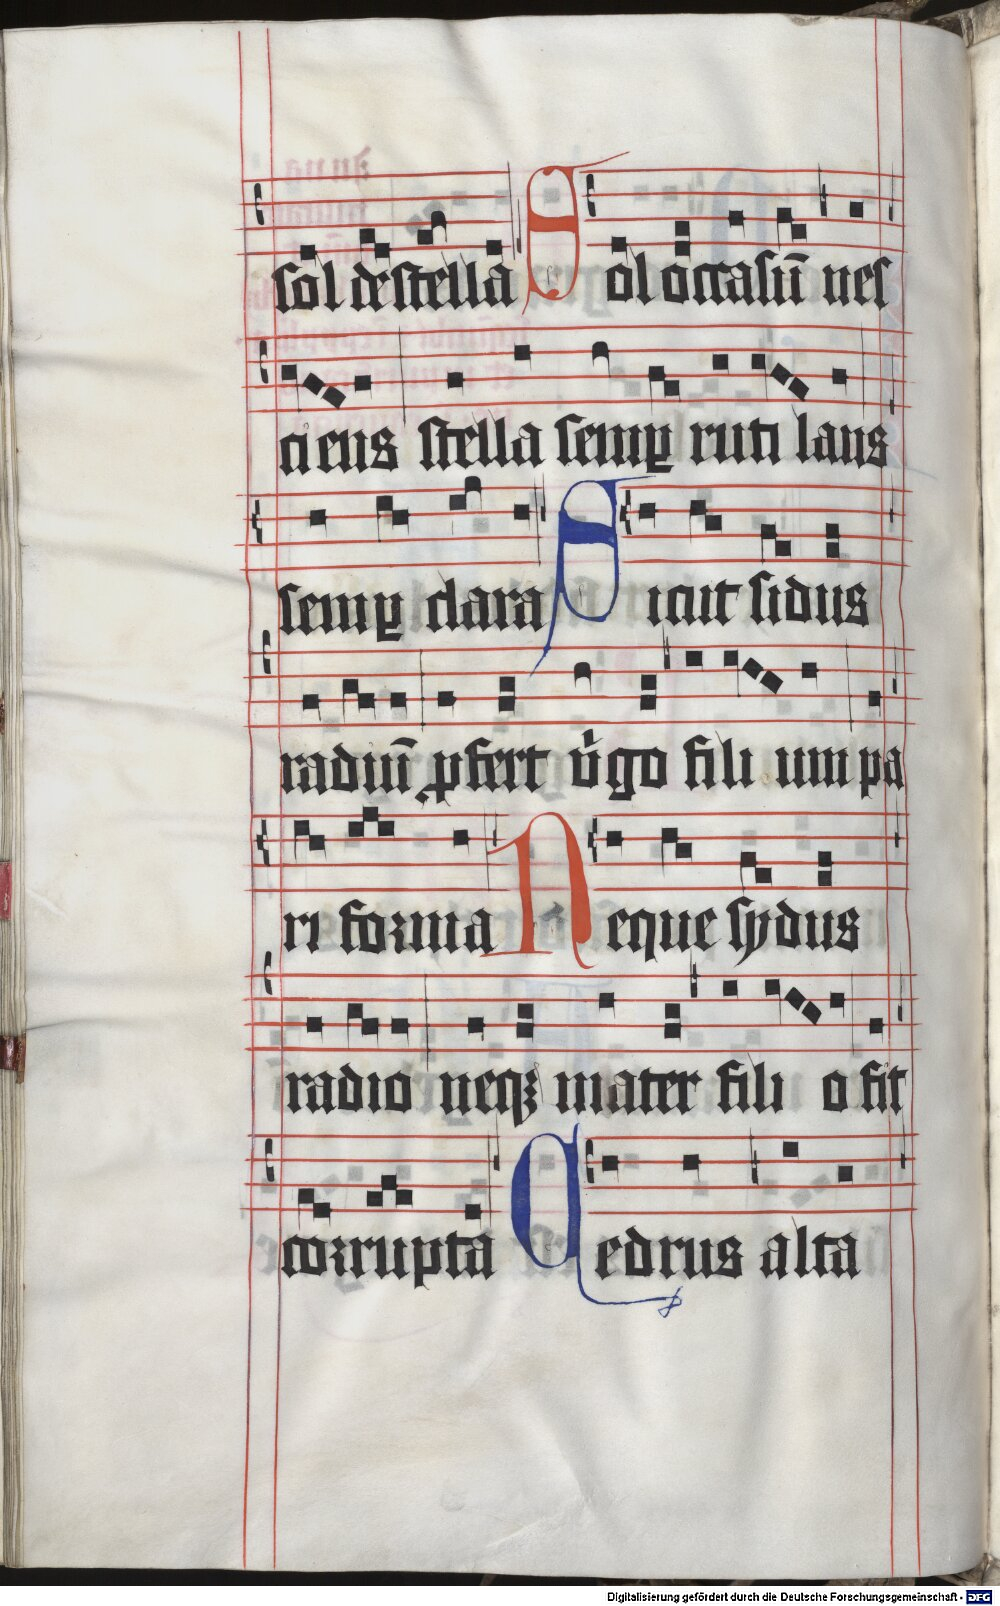 sol de stella Sol occasū nes
ciens stella semꝑ ruti lans
semꝑ clara Sicut sidus
radiū ꝓfert v̇go fili um pa
ri forma Neque sydus
radio neqꝫ mater fili o fit
corrupta Cedrus alta
Digitalisierung gefördert durch die Deutsche Forschungsgemeinschaft - DFG